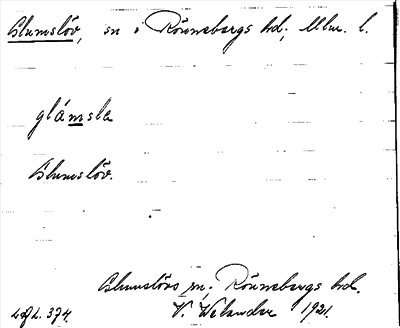 Glumslöv, sn i Rönnebergs hd; Mlm. l.
glámsla
Glumslöv.
Glumslövs sn; Rönnebergs hd.
V. Welander 1921.
L 374.